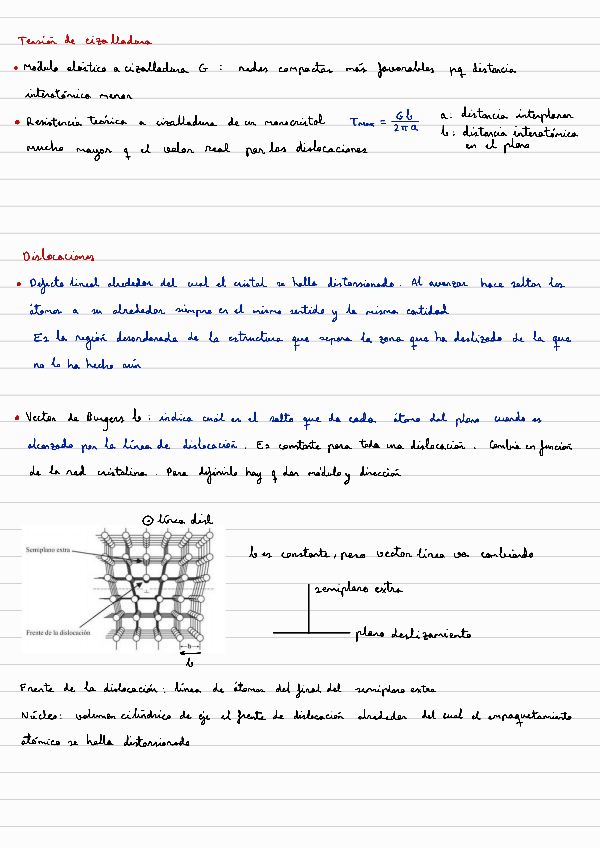 Tensión de cizalladura
• Módulo elástico a cizalladura G : redes compactas más favorables pq distancia
interatómica menor
• Resistencia teórica a cizalladura de un monocristal τmax = Gb / 2πa a: distancia interplanar
b: distancia interatómica
en el plano
mucho mayor q el valor real por las dislocaciones
Dislocaciones
• Defecto lineal alrededor del cual el cristal se halla distorsionado. Al avanzar hace saltar los
átomos a su alrededor siempre en el mismo sentido y la misma cantidad
Es la región desordenada de la estructura que separa la zona que ha deslizado de la que
no lo ha hecho aún
• Vector de Burgers b : indica cuál es el salto que da cada átomo del plano cuando es
alcanzado por la línea de dislocación. Es constante para toda una dislocación. Cambia en función
de la red cristalina. Para definirlo hay q dar módulo y dirección
línea disl
Semiplano extra
b es constante, pero vector línea va cambiando
semiplano extra
Frente de la dislocación
plano deslizamiento
b
b
Frente de la dislocación: línea de átomos del final del semiplano extra
Núcleo: volumen cilíndrico de eje el frente de dislocación alrededor del cual el empaquetamiento
atómico se halla distorsionado